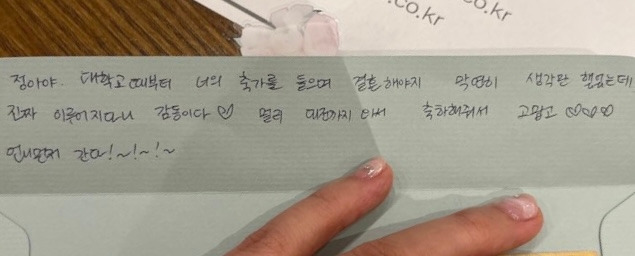 .co.kr
co.kr
정아야. 대학교때부터 너의 축가를 들으며 결혼해야지 막연히 생각만 했었는데
진짜 이루어지다니 감동이다♡ 멀리 대전까지 와서 축하해줘서 고맙고 ♡♡♡
언니먼저 간다!~!~!~